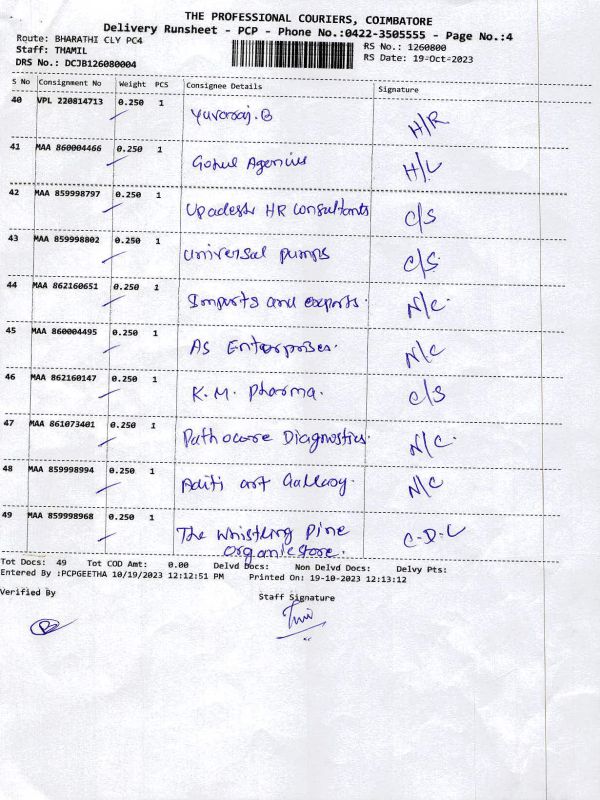 THE PROFESSIONAL COURIERS, COIMBATORE
Delivery Runsheet - PCP - Phone No.:0422-3505555 - Page No.:4
Route: BHARATHI CLY PC4
RS No.: 1260800
Staff: THAMIL
RS Date: 19-Oct-2023
DRS No.: DCJB126080004
S No Consignment No Weight PCS Consignee Details Signature
40 VPL 220814713 0.250 1 Yuvaraj.B H/R
41 MAA 860004466 0.250 1 Gokul Agencies H/L
42 MAA 859998797 0.250 1 Upadesh HR Consultants C/S
43 MAA 859998802 0.250 1 Universal pumps C/S
44 MAA 862160651 0.250 1 Imports and exports. N/C
45 MAA 860004495 0.250 1 AS Enterprises. N/C
46 MAA 862160147 0.250 1 K.M. Pharma. C/S
47 MAA 861073401 0.250 1 Pathocare Diagnostics. N/C
48 MAA 859998994 0.250 1 Aditi art Gallery. N/C
49 MAA 859998968 0.250 1 The Whistling Pine C-D-L
organic store.
Tot Docs: 49 Tot COD Amt: 0.00 Delvd Docs: Non Delvd Docs: Delvy Pts:
Entered By :PCPGEETHA 10/19/2023 12:12:51 PM Printed On: 19-10-2023 12:13:12
Verified By
Staff Signature